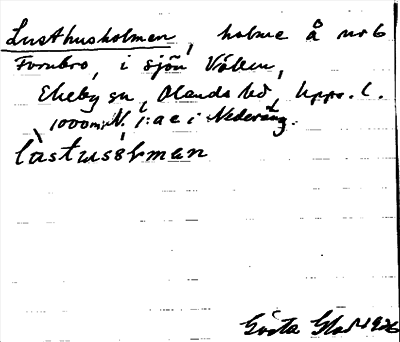 Lusthusholmen, holme å nr 6
Fornbro, i sjön Vällen,
Ekeby sn, Olands hd, Upps. l.
1000 m N. 1:a e i Nederäng.
lùstusòlman
Gösta 1926